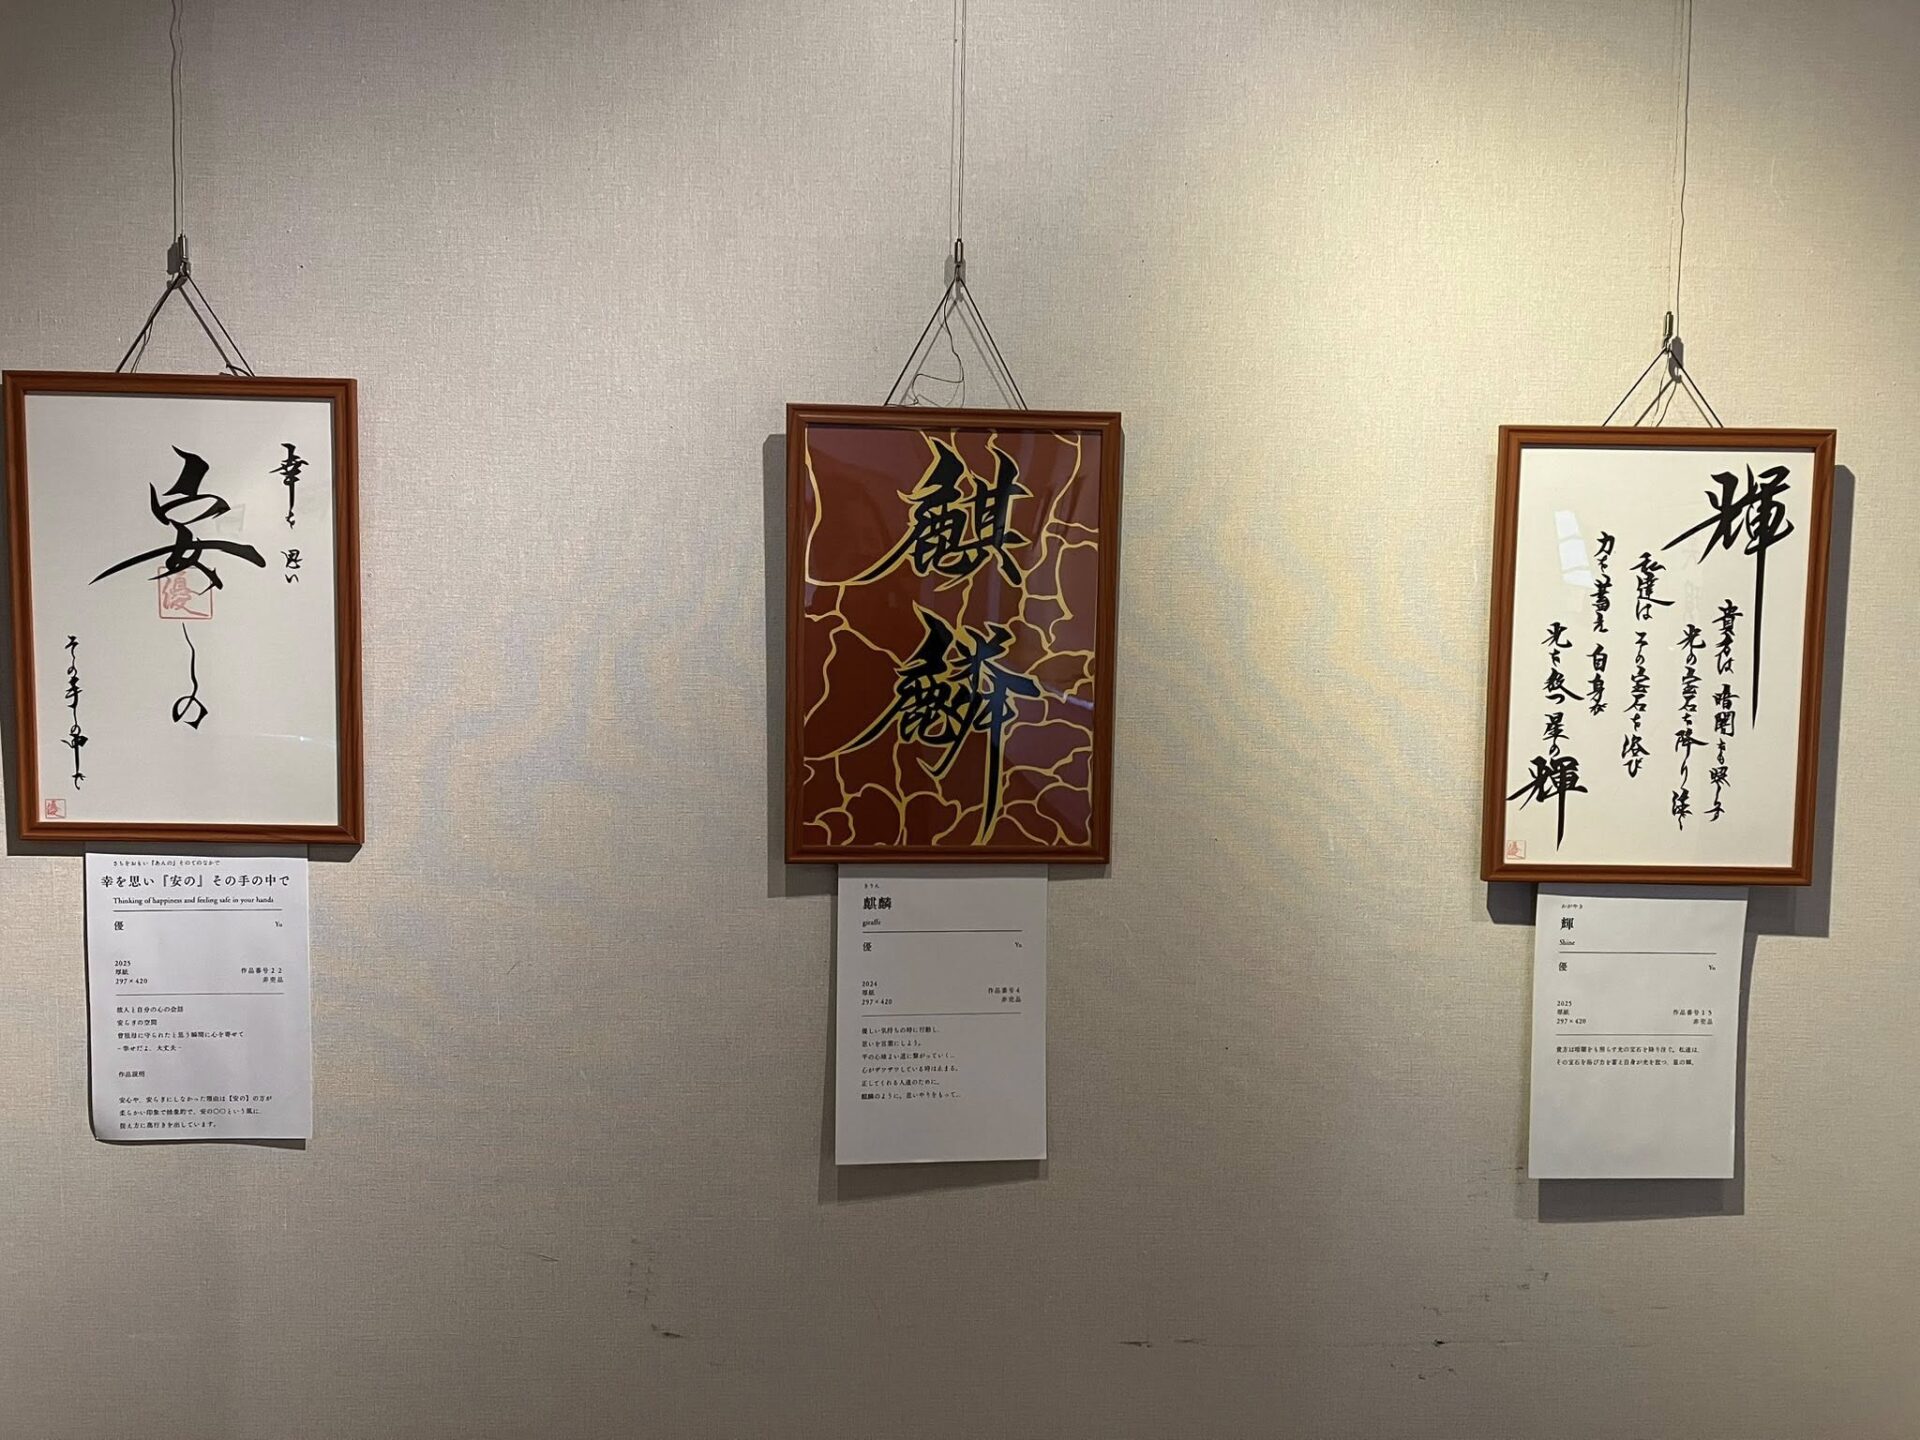 幸を思い
安の
優
その手の中で
優
さちをおもい『あんの』そのてのなかで
幸を思い『安の』その手の中で
Thinking of happiness and feeling safe in your hands
優 Yu
2025
厚紙 作品番号22
297×420 非売品
故人と自分の心の会話
安らぎの空間
曾祖母に守られたと思う瞬間に心を寄せて
-幸せだよ、大丈夫-
作品説明
安心や、安らぎにしなかった理由は【安の】の方が
柔らかい印象で抽象的で、安の〇〇という風に、
捉え方に奥行きを出しています。
麒麟
きりん
麒麟
giraffe
優 Yu
2024
厚紙 作品番号4
297×420 非売品
優しい気持ちの時に行動し、
思いを言葉にしよう。
平の心緒よい道に繋がっていく。
心がザワザワしている時は止まる。
正してくれる人達のために。
麒麟のように。思いやりをもって。
輝
貴方は暗闇をも照らす
光の宝石を降り注ぐ
私達はその宝石を浴び
力を蓄え自身が
光を放つ星の輝
優
かがやき
輝
Shine
優 Yu
2025
厚紙 作品番号15
297×420 非売品
貴方は暗闇をも照らす光の宝石を降り注ぐ。私達は、
その宝石を浴び力を蓄え自身が光を放つ、星の輝。